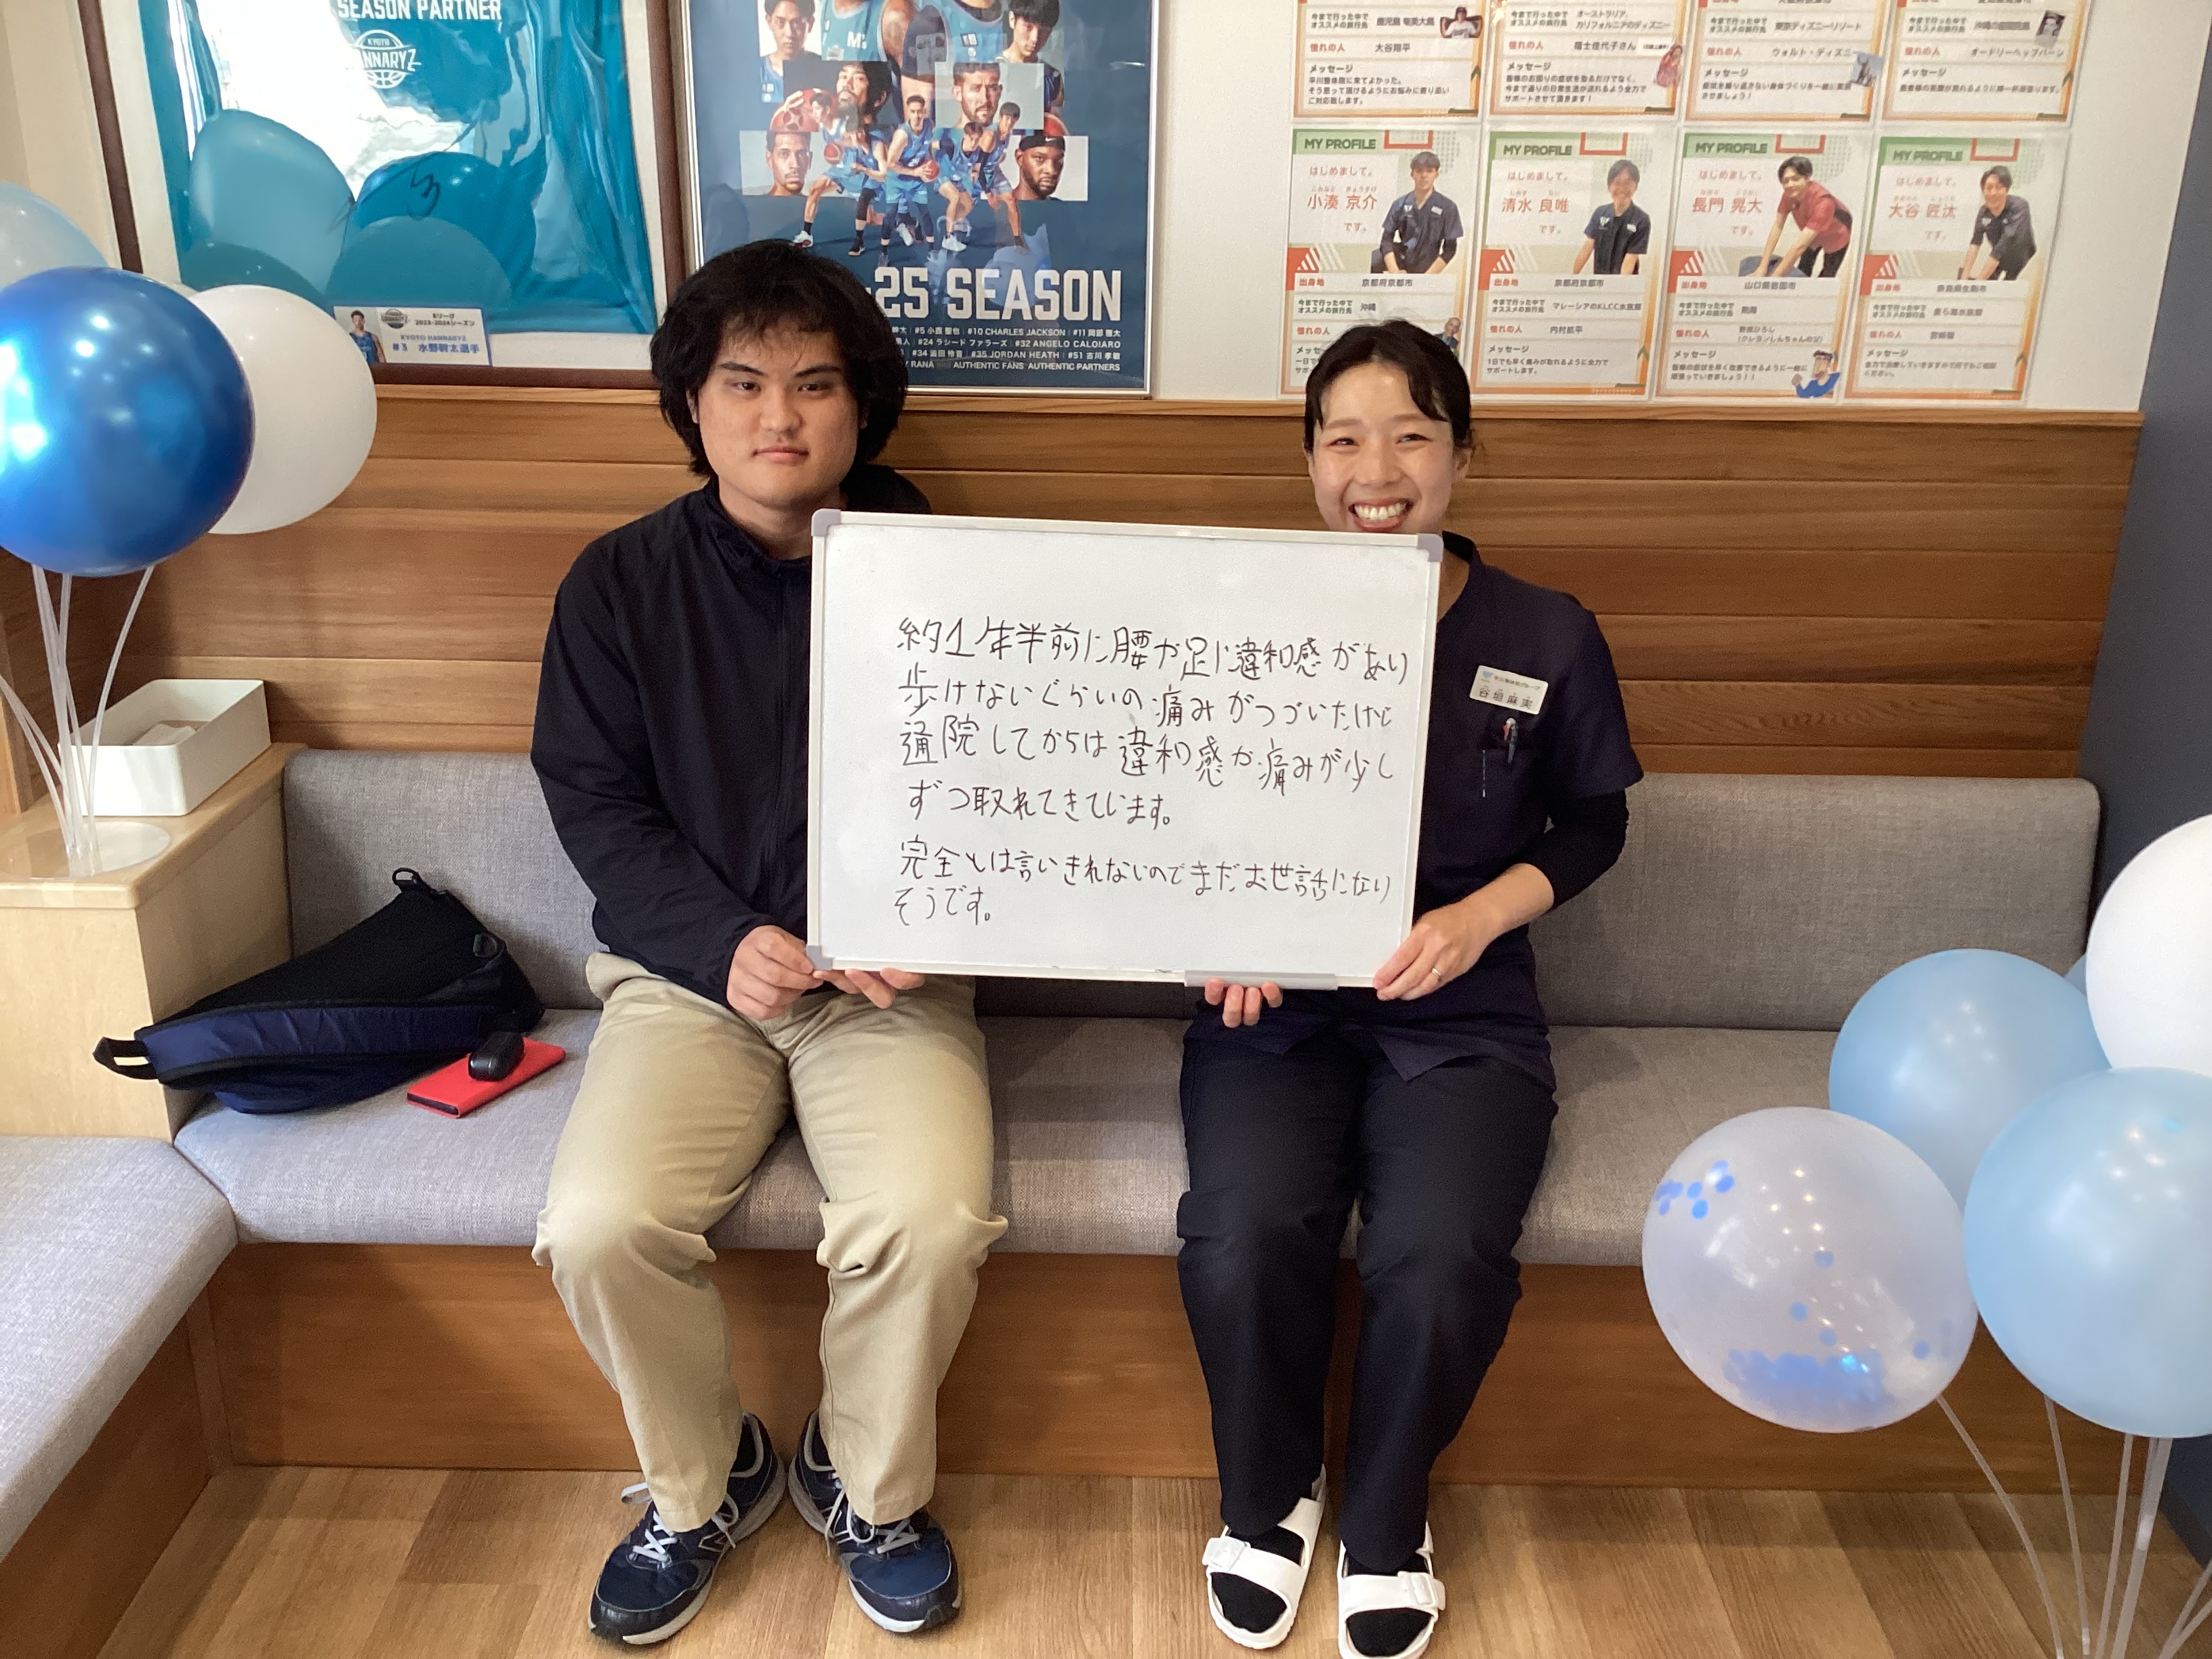 SEASON PARTNER
KYOTO
HANNARYZ
Bリーグ
2023-2024シーズン
KYOTO HANNARYZ
#3 水野幹太選手
-25 SEASON
#5 小西 聖也 | #10 CHARLES JACKSON | #11 岡部 雅大
#24 ラシード ファラーズ | #32 ANGELO CALOIARO
#34 澁田 怜音 | #35 JORDAN HEATH | #51 古川 孝敏
RANA AUTHENTIC FANS AUTHENTIC PARTNERS
今まで行った中で
オススメの旅行先
鹿児島 奄美大島
憧れの人 大谷翔平
メッセージ
平川整体院に来てよかった。
そう思って頂けるようにお悩みに寄り添い
ご対応致します。
今まで行った中で
オススメの旅行先
オーストラリア、
カリフォルニアのディズニー
憧れの人
メッセージ
皆様のお困りの症状を取るだけでなく、
今まで通りの日常生活が送れるよう全力で
サポートさせて頂きます！
今まで行った中で
オススメの旅行先
東京ディズニーリゾート
憧れの人 ウォルト・ディズニー
メッセージ
症状を繰り返さない身体づくりを一緒に実現
させましょう！
今まで行った中で
オススメの旅行先
憧れの人 オードリーヘップバーン
メッセージ
MY PROFILE
はじめまして。
こみなと きょうすけ
小湊 京介
です。
出身地 京都府京都市
今まで行った中で
オススメの旅行先
沖縄
憧れの人
MY PROFILE
はじめまして。
清水 良唯
です。
出身地 京都府京都市
今まで行った中で
オススメの旅行先
マレーシアのKLCC水族館
憧れの人 内村航平
メッセージ
1日でも早く痛みが取れるように全力で
サポートします。
MY PROFILE
はじめまして。
長門 晃大
です。
出身地 山口県岩国市
今まで行った中で
オススメの旅行先
熱海
憧れの人 野原ひろし
(クレヨンしんちゃんの父)
メッセージ
皆様の症状を早く改善できるように一緒に
頑張っていきましょう！！
MY PROFILE
はじめまして。
大谷 匠汰
です。
出身地 奈良県生駒市
今まで行った中で
オススメの旅行先
美ら海水族館
憧れの人
メッセージ
約1年半前に腰か足に違和感があり
歩けないぐらいの痛みがつづいたけど
通院してからは違和感か痛みが少し
ずつ取れてきています。
完全とは言いきれないのでまだお世話になり
そうです。
平川整体院グループ
谷垣麻実